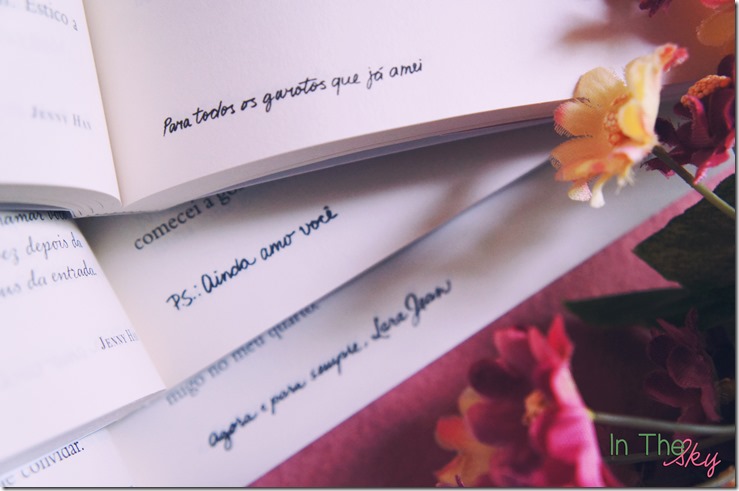 . Estico a
JENNY HAN
Para todos os garotos que já amei
comecei a
PS.: Ainda amo você
ez depois da
us da entrada.
JENNY HAN
migo no meu quarto
agora e para sempre, Lara Jean
convidar.
In The Sky